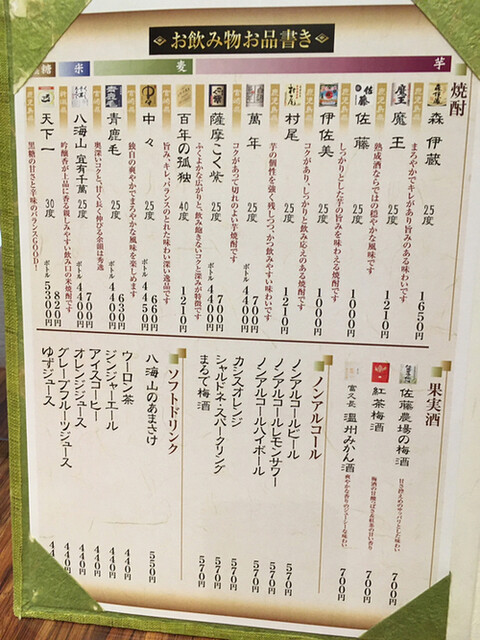 お飲み物お品書き
芋
麦
米
糖
焼酎
森伊蔵 25度 1650円
まろやかでキレがあり旨みのある味わいです
魔王 25度 1210円
熟成酒ならではの穏やかな風味です
佐藤 25度 1000円
しっかりとした芋の旨みを味わえる焼酎です
伊佐美 25度 1000円
コクがあり、しっかりと飲み応えのある焼酎です
村尾 25度 1210円
芋の個性を強く残しつつ、かつ飲みやすい味わいです
萬年 25度 700円
ボトル 4400円
コクがあって切れのよい芋焼酎です
薩摩こく紫 25度 700円
ボトル 4400円
ふくよかな広がりと飲み飽きないコクと深みが特徴です
百年の孤独 40度 1210円
旨み、キレ、バランスのとれた味わい深い逸品です
中々 25度 660円
ボトル 4650円
独自の爽やかでまろやかな風味を楽しめます
青鹿毛 25度 630円
ボトル 4400円
奥深いコクと、甘く長く伸びる余韻は秀逸
八海山 宜有千萬 25度 700円
ボトル 4400円
吟醸香が上品に香る親しみやすい飲み口の米焼酎です
天下一 30度
ボトル 5380円
黒糖の甘さと辛味のバランスGOOD!
果実酒
佐藤農場の梅酒 700円
甘さ控えめのサッパリとした味わい
紅茶梅酒 700円
梅酒の甘酸っぱさと紅茶の甘い香り
富久長 温州みかん酒 700円
爽やかな香りのジューシーな味わい
ノンアルコール
ノンアルコールビール 570円
ノンアルコールレモンサワー 570円
ノンアルコールハイボール 570円
カシスオレンジ 570円
シャルドネ・スパークリング 570円
まるで梅酒 570円
ソフトドリンク
八海山のあまさけ 550円
ウーロン茶 440円
ジンジャーエール 440円
アイスコーヒー 440円
オレンジジュース 440円
グレープフルーツジュース 440円
ゆずジュース